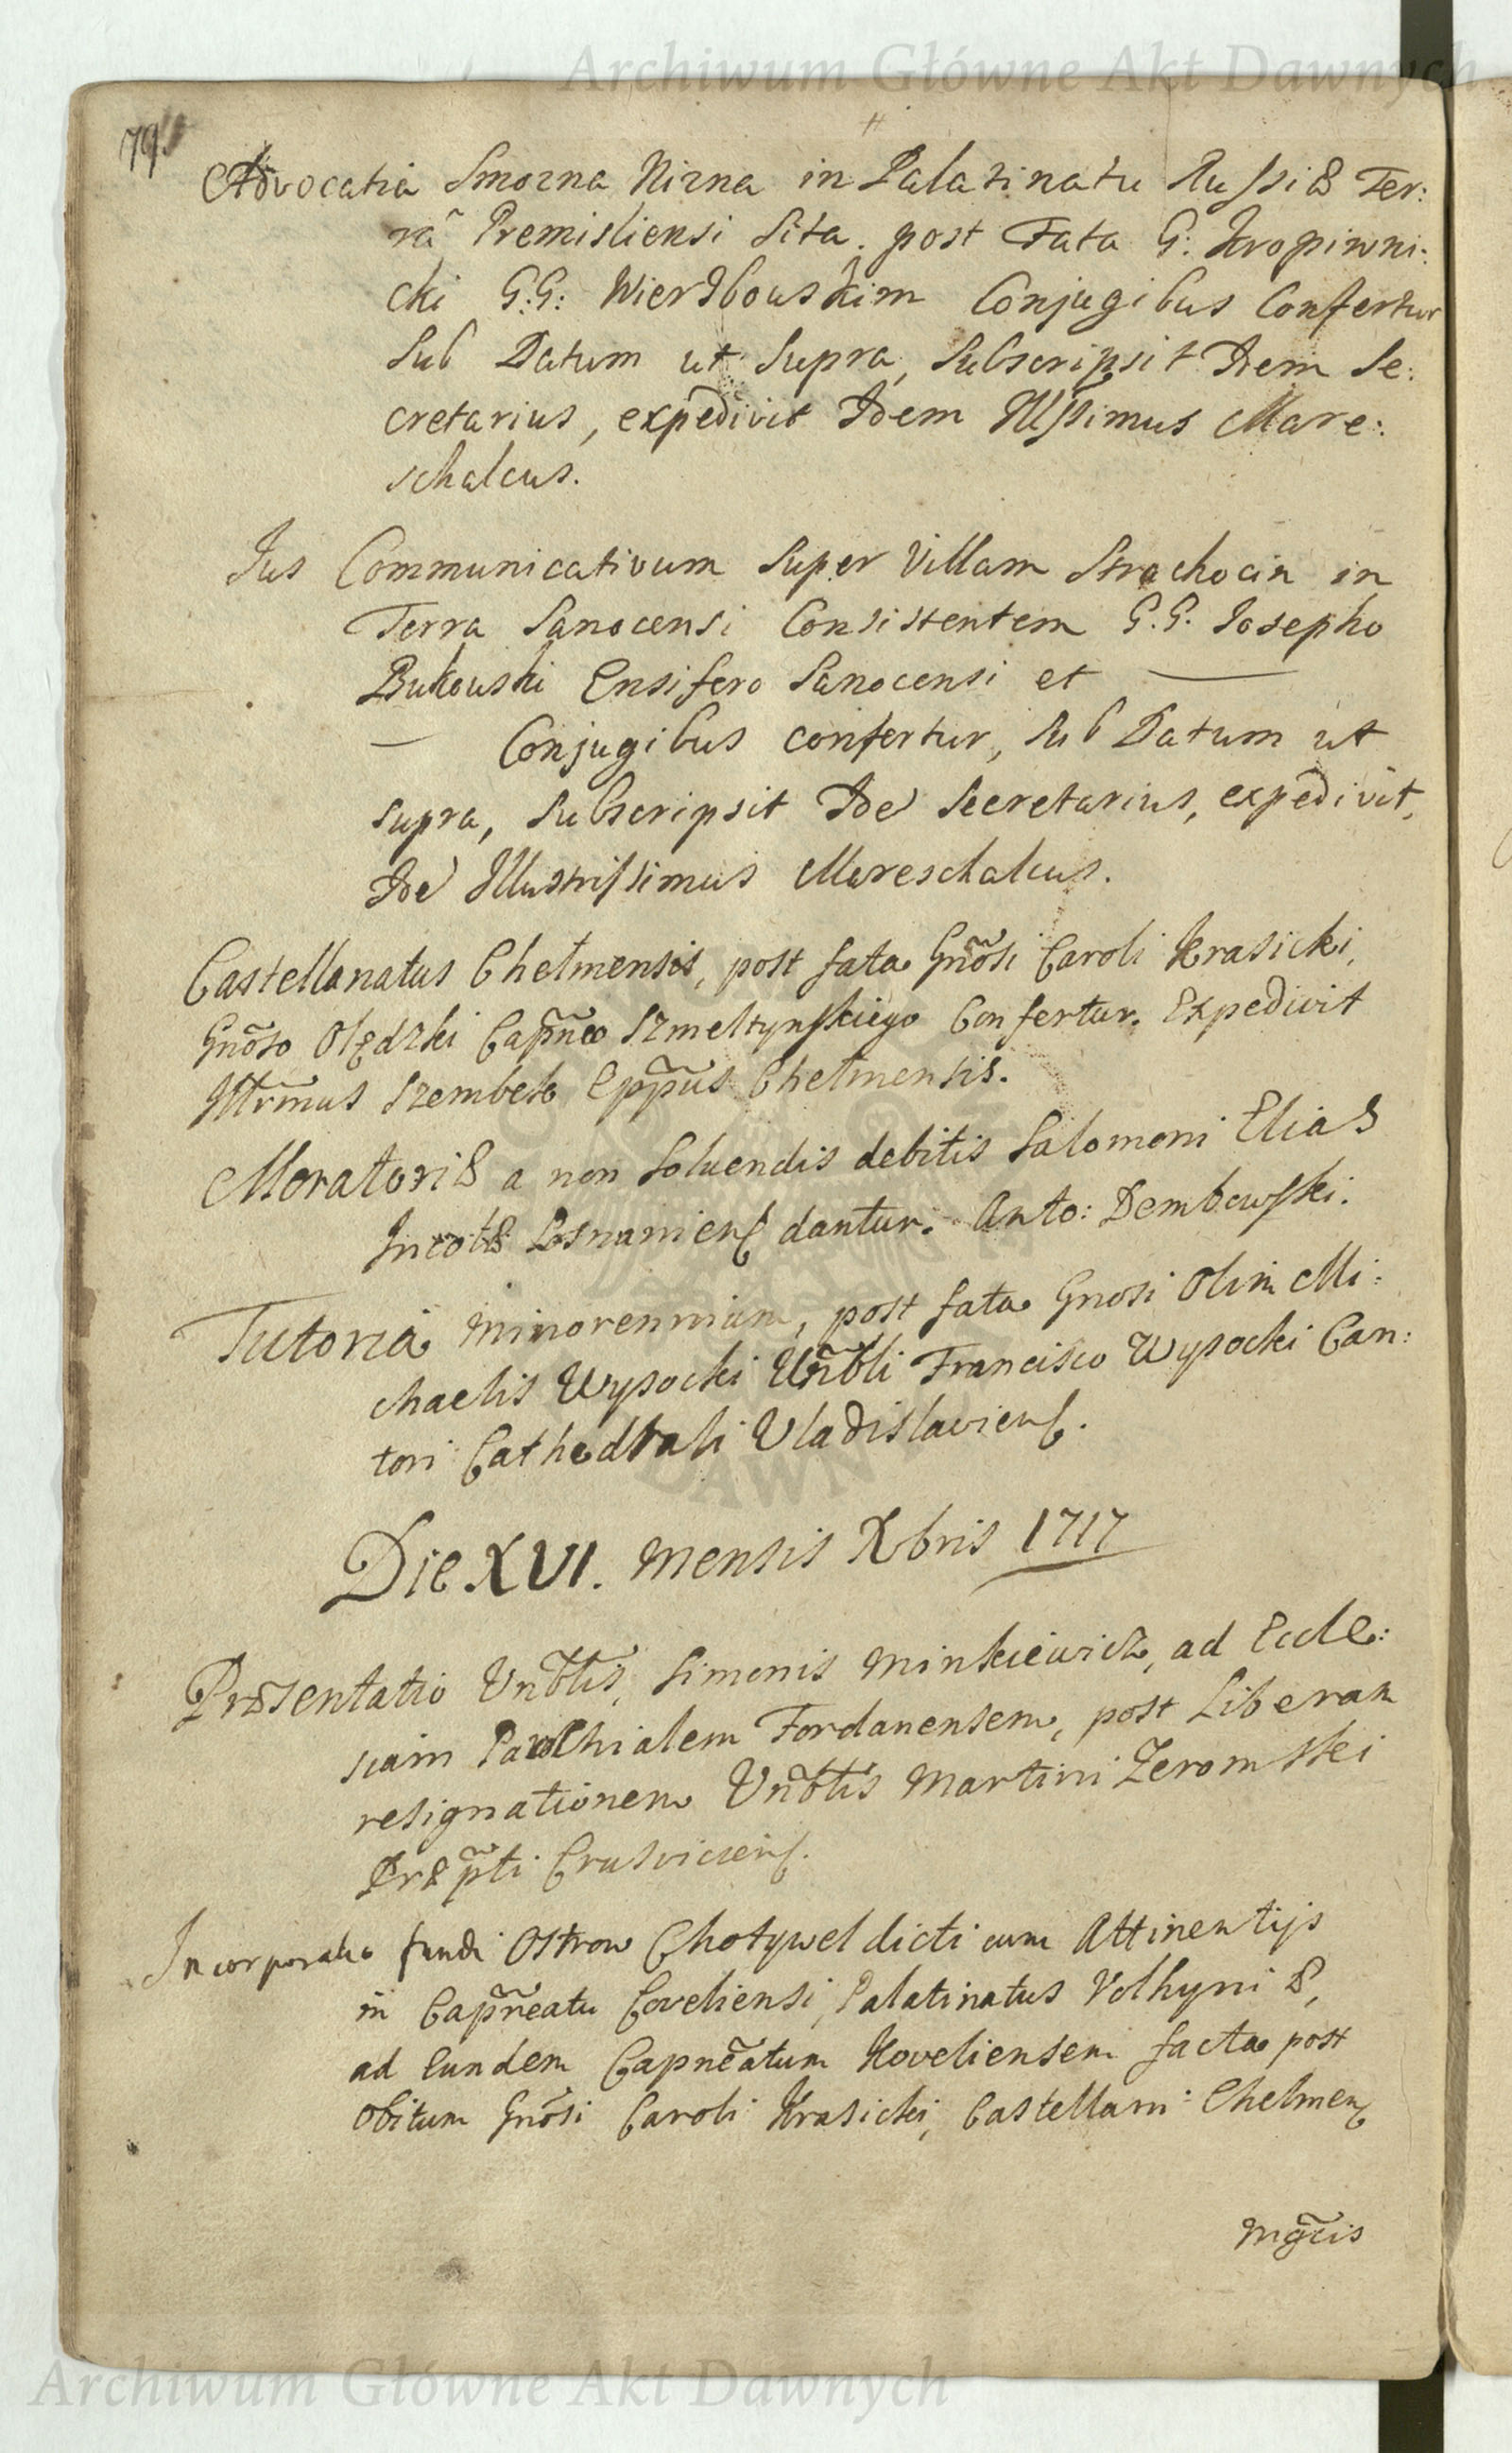 Archiwum Główne Akt Dawnych
79
Advocatia Smozna Nizna in Palatinatu Russiæ Ter:
râ Premisliensi Sita. post Fata G: Kropiwni:
cki G:G: Wierzbouskim Conjugibus Confertur
Sub Datum ut Supra, Subscripsit Idem Se:
cretarius, expedivit Idem Illssimus Mare:
schalcus.
Jus Communicativum Super Villam Strachocin in
Terra Sanocensi Consistentem G.G. Josepho
Bukouski Ensifero Sanocensi et —
— Conjugibus confertur, Sub Datum ut
supra, Subscripsit Ide Secretarius, expedivit,
Ide Illustrissimus Mareschalcus.
Castellanatus Chelmensis, post fata Gnõsi Caroli Krasicki,
Gnõso Olędzki Capñeo Szmeltynskiego Confertur. Expedivit
Illrm̃us Szembek Epp̃us Chelmensis.
Moratoriæ a non Soluendis debitis Salomoni Eliaæ
Incolæ Posnaniens dantur. Anto: Dembowski.
Tutoria minorennium, post fata Gnosi Olim Mi:
chaelis Wysocki Uñbli Francisco Wysocki Can:
tori Cathedrali Vladislaviens.
Die XVI. mensis Xbris 1717
Præsentatio Vnb̃lis, Simonis Minkiewicz, ad Eccle:
siam Parochialem Fordanensem, post Liberam
resignationem Vnb̃lis Martini Zeromski
Præp̃ti Crusviciens.
Incorporatio fundi Ostrow Chotywel dicti cum Attinentijs
in Capñeatu Coveliensi, Palatinatus Volhyniæ,
ad Eundem Capneãtum Koveliensem facta post
Obitum Gnõsi Caroli Krasicki, Castellani Chelmens
Mgc̃is
Archiwum Główne Akt Dawnych